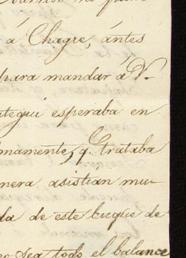 a Chagre, ántes
mandar á V.
ategui esperaba en
mamente, q. trataba
nera asistian mu
da de este buque de
sea todo el balance